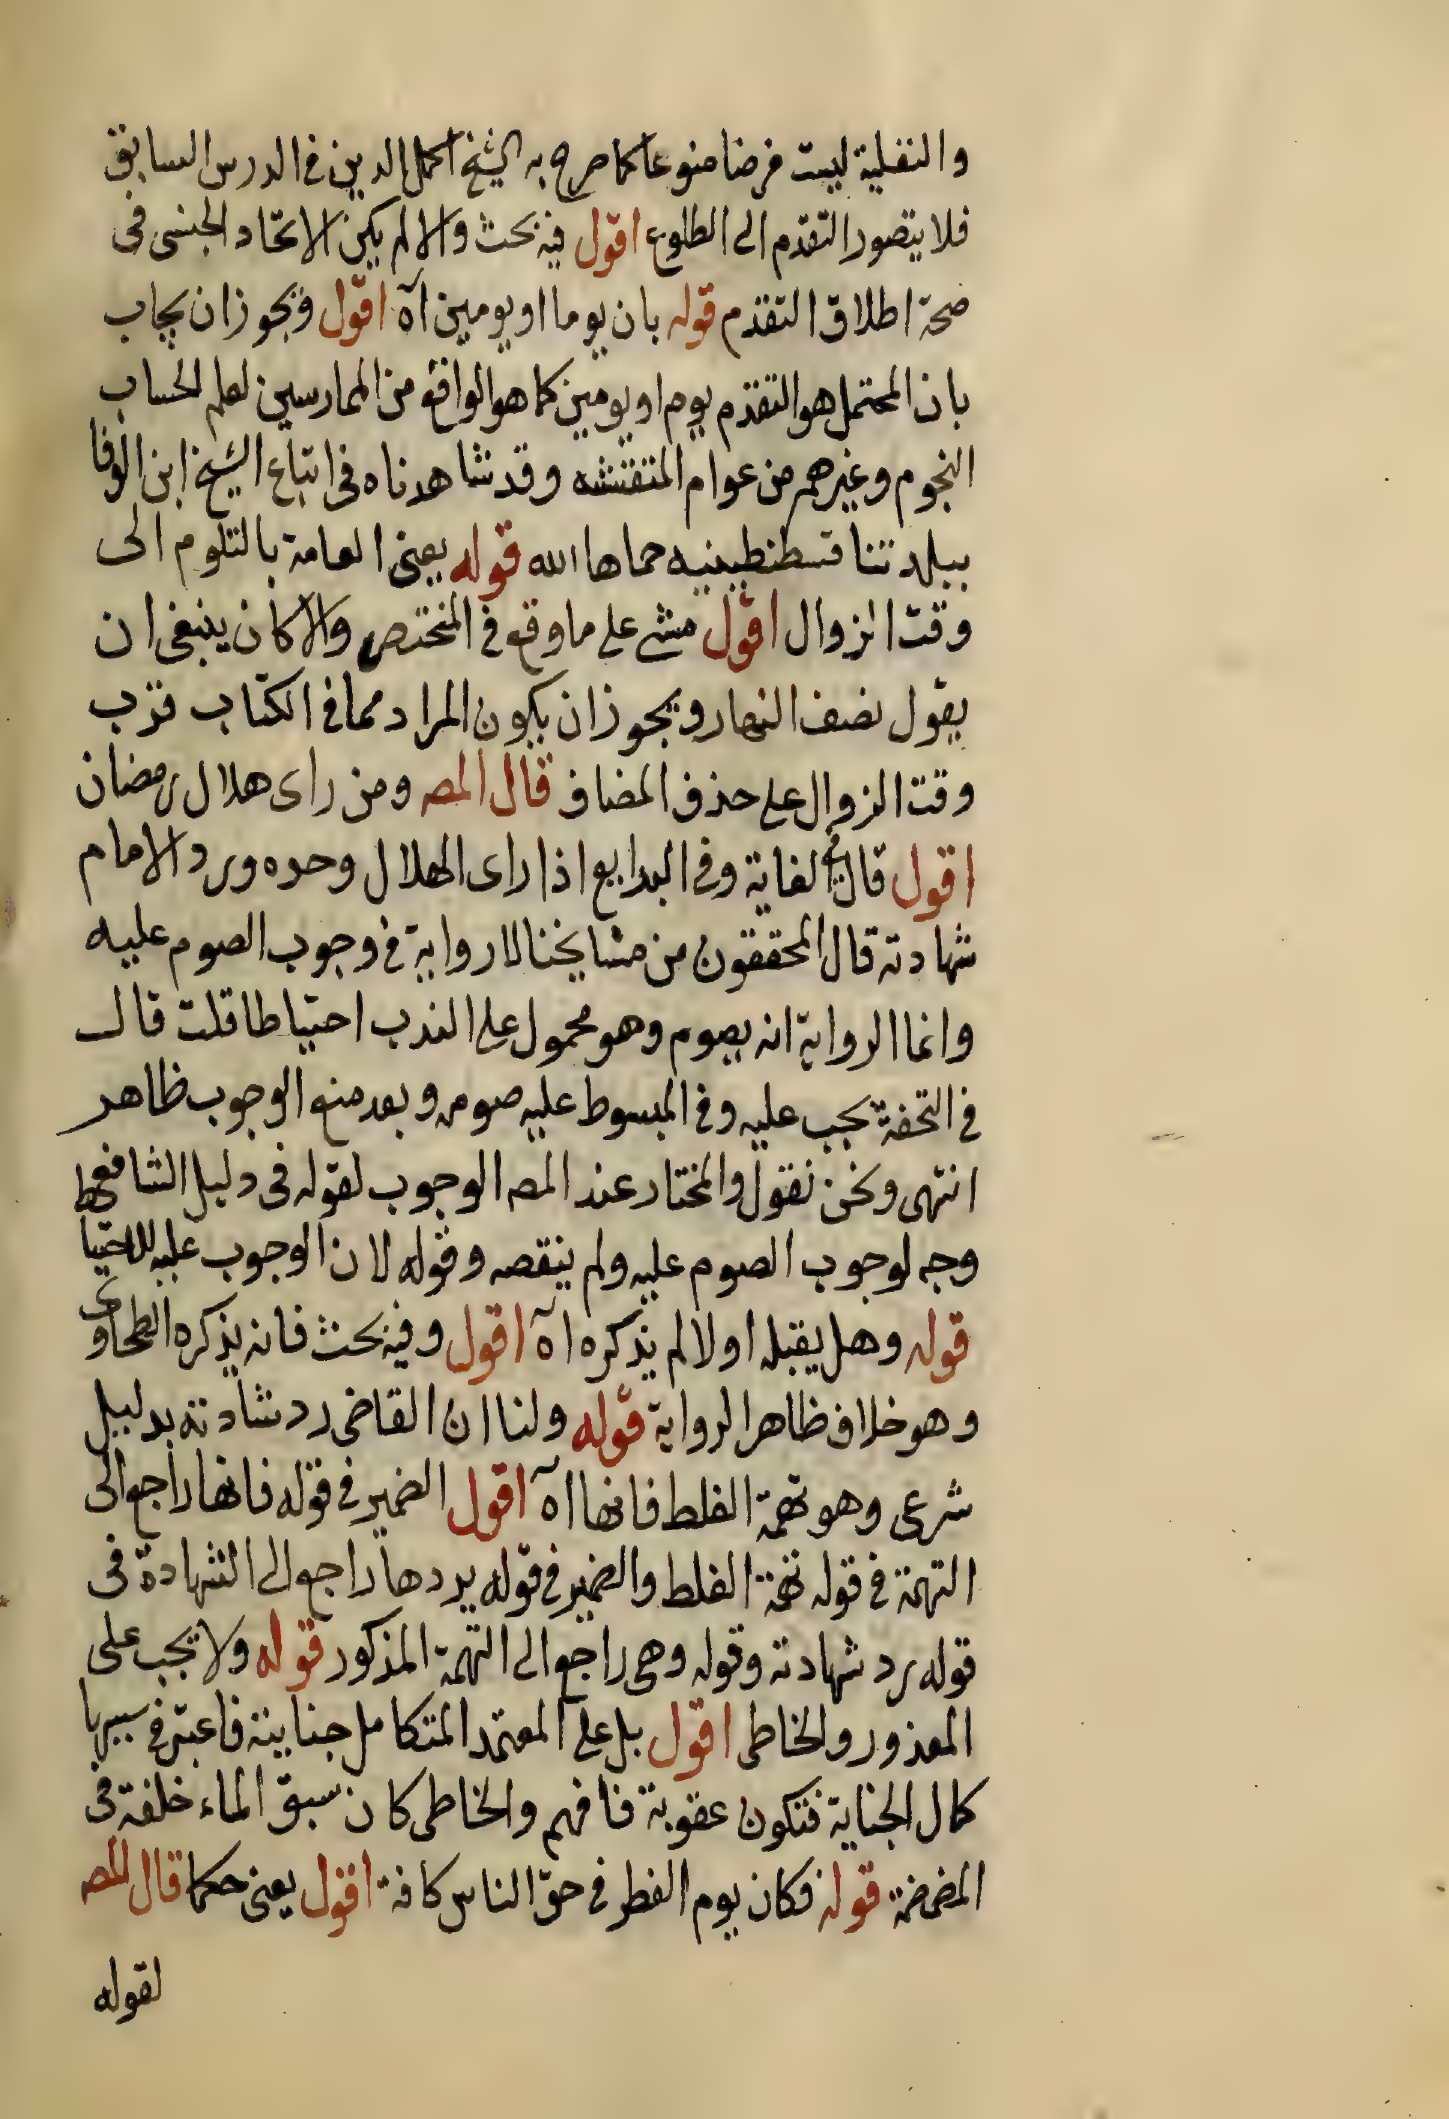 والنفلية ليست فرضا منوعا كما صرح به الشيخ اكمل الدين في الدرس السابق
فلا يتصور التقدم الى الطلوع اقول فيه بحث والا لم يكن الاتحاد الجنسى فى
صحة اطلاق التقدم قوله بان يوما او يومين اه اقول ويجوز ان يجاب
بان المحتمل هو التقدم يوم او يومين كما هو الواقع من الممارسين لعلم الحساب
النجوم وغيرهم من عوام المتقشفه وقد شاهدناه فى اتباع الشيخ ابن الوفا
ببلدتنا قسطنطينيه حماها الله قوله يعنى العامة بالتلوم الى
وقت الزوال اقول مشى على ما وقع في المختصر والا كان ينبغى ان
يقول نصف النهار ويجوز ان يكون المراد مما فى الكتاب قرب
وقت الزوال على حذف المضاف قال المصه ومن راى هلال رمضان
اقول قال في الغاية وفي البدايع اذا راى الهلال وحده ورد الامام
شهادته قال المحققون من مشايخنا لا رواية في وجوب الصوم عليه
وانما الرواية انه يصوم وهو محمول على الندب احتياطا قلت قال
في التحفة يجب عليه وفي المبسوط عليه صومه وبعد منع الوجوب ظاهر
انتهى ونحن نقول والمختار عند المصه الوجوب لقوله فى دليل الشافعى
وجه لوجوب الصوم عليه ولم ينقصه وقوله لان الوجوب عليه للاحتياط
قوله وهل يقبله اولا لم يذكره اه اقول وفيه بحث فانه يذكره الطحاوى
وهو خلاف ظاهر الرواية قوله ولنا ان القاضى رد شادته بدليل
شرعى وهو تهمة الغلط فانها اه اقول الضمير في قوله فانها راجع الى
التهمة في قوله تهمة الغلط والضمير في قوله يردها راجع الى الشهادة فى
قوله رد شهادته وقوله وهى راجع الى التهمة المذكور قوله ولا يجب على
المعذور والخاطى اقول بل على المعتمد المتكامل جنايته فاعتبر في سببها
كمال الجناية فتكون عقوبة فافهم والخاطى كان سبق الماء خلفه في
المضمضة قوله فكان يوم الفطر في حق الناس كافة اقول يعنى حكما قال المصه
لقوله